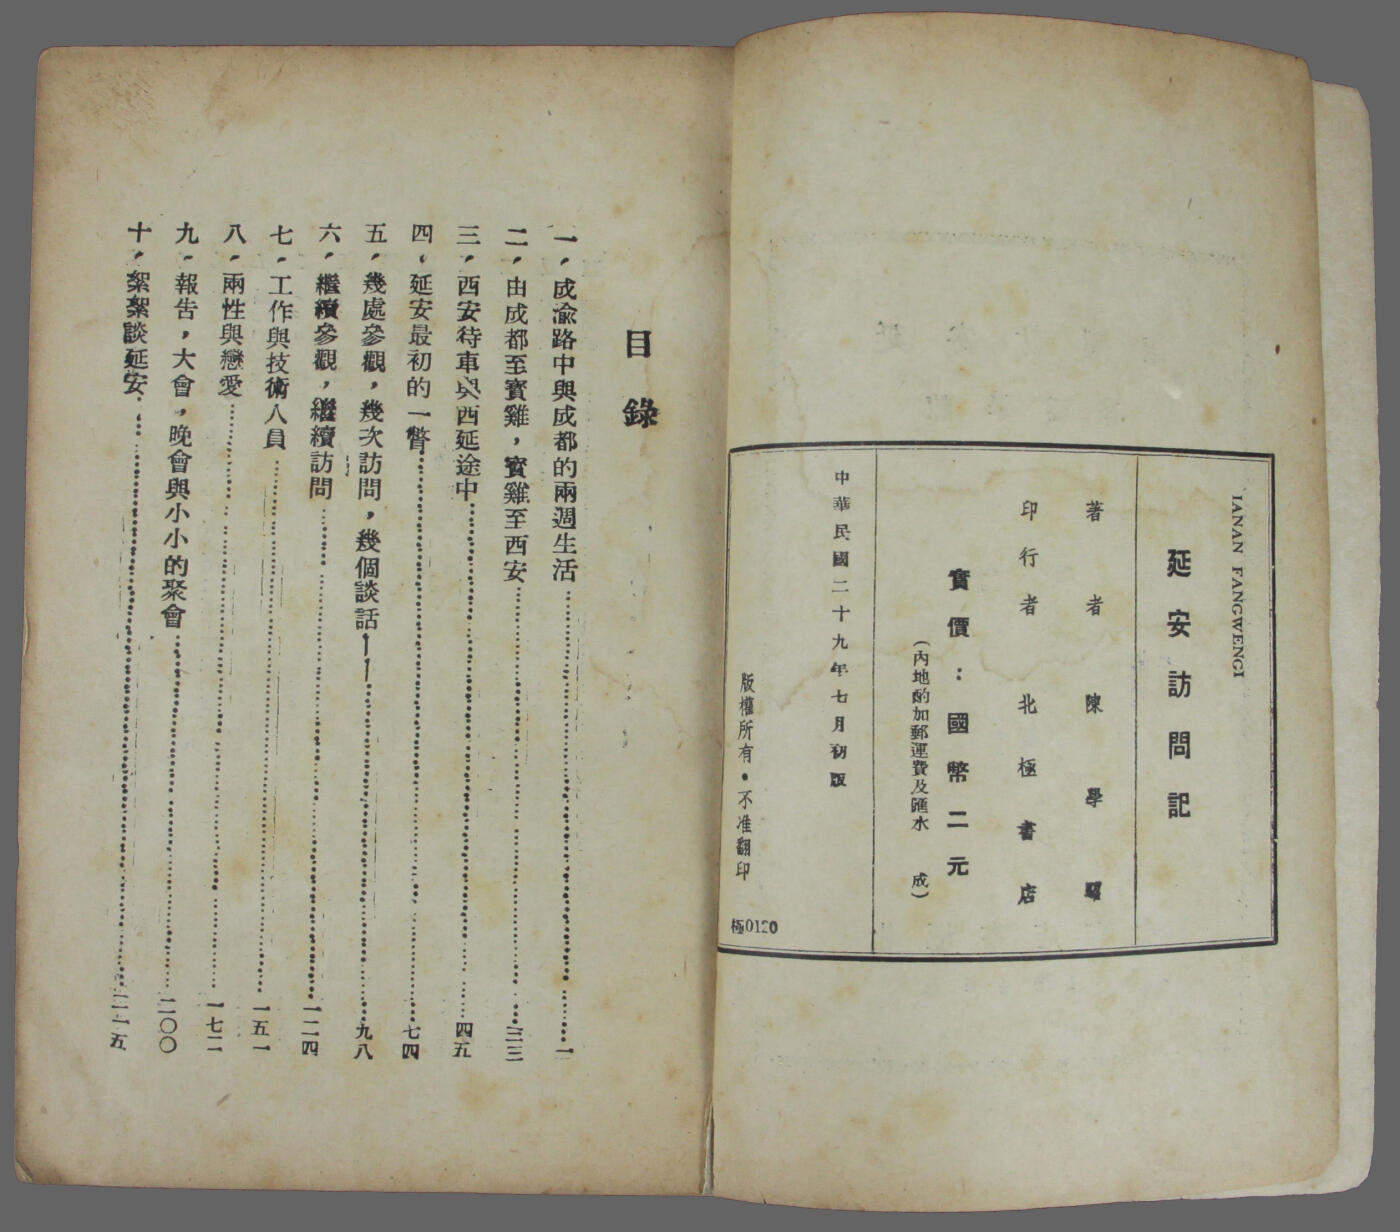 IANAN FANGWENGI
延安訪問記
著者 陳學昭
印行者 北極書店
實價：國幣二元
（內地酌加郵運費及匯水 成）
中華民國二十九年七月初版
版權所有·不准翻印
極0120
目錄
一，成渝路中與成都的兩週生活……一
二，由成都至寶雞，寶雞至西安……三三
三，西安待車與西延途中……四五
四，延安最初的一瞥……七四
五，幾處參觀，幾次訪問，幾個談話——……九八
六，繼續參觀，繼續訪問……一二四
七，工作與技術人員……一五一
八，兩性與戀愛……一七二
九，報告，大會，晚會與小小的聚會……二〇〇
十，絮絮談延安……二一五